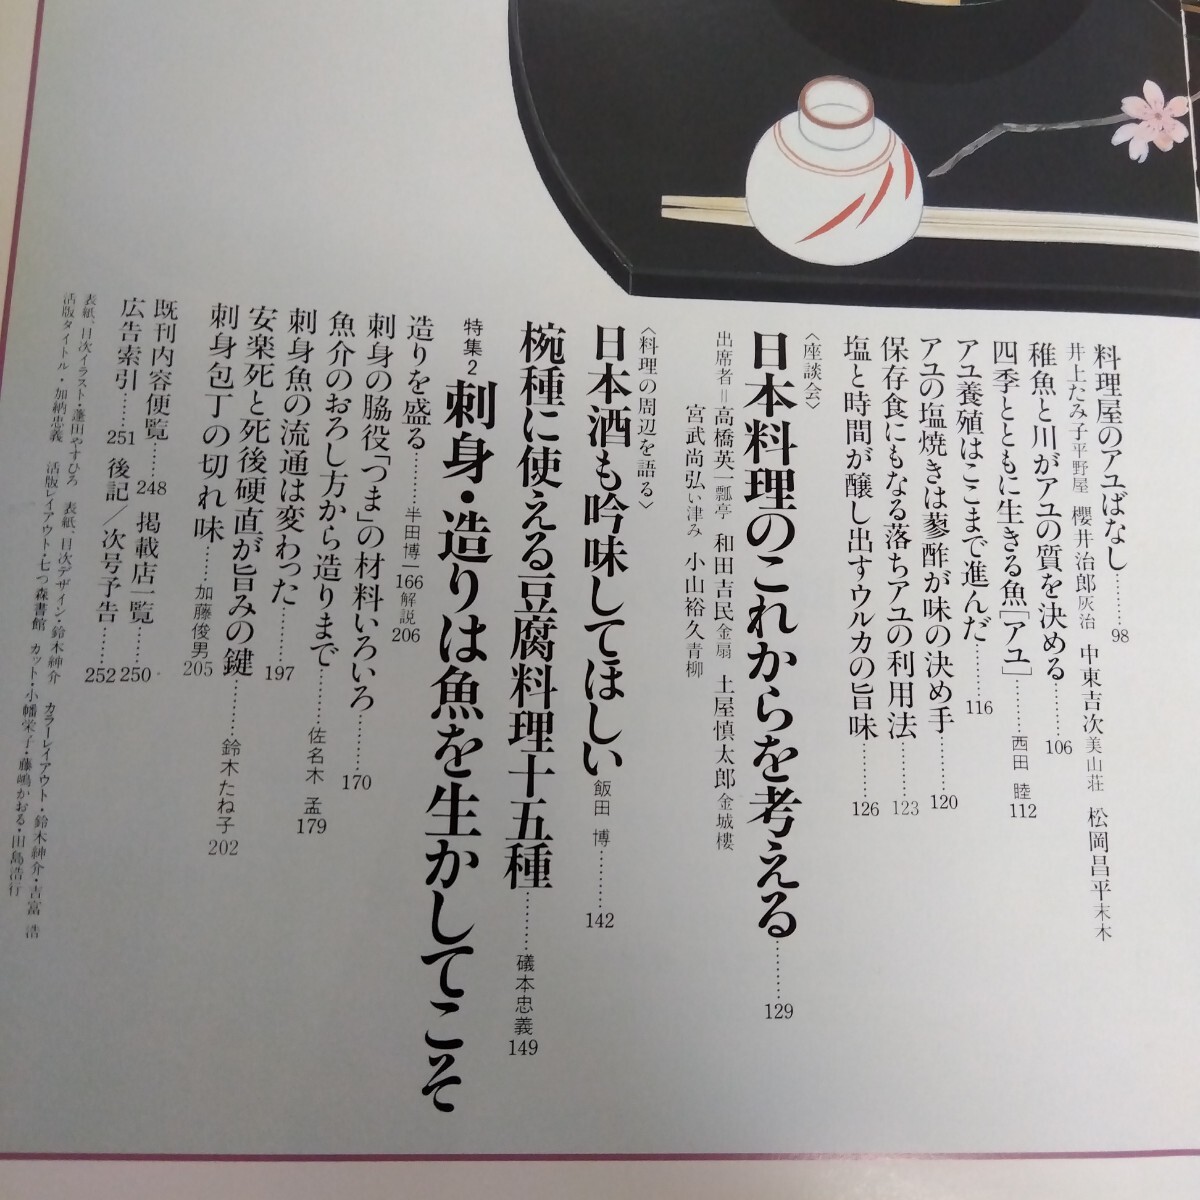 料理屋のアユばなし………98
井上たみ子平野屋 櫻井治郎灰治 中東吉次美山荘 松岡昌平末木
稚魚と川がアユの質を決める………106
四季とともに生きる魚[アユ]………西田 睦112
アユ養殖はここまで進んだ………116
アユの塩焼きは蓼酢が味の決め手………120
保存食にもなる落ちアユの利用法………123
塩と時間が醸し出すウルカの旨味………126
〈座談会〉
日本料理のこれからを考える………129
出席者＝高橋英一瓢亭 和田吉民金扇 土屋慎太郎金城樓
宮武尚弘い津み 小山裕久青柳
〈料理の周辺を語る〉
日本酒も吟味してほしい 飯田 博………142
椀種に使える豆腐料理十五種………礒本忠義149
特集2 刺身・造りは魚を生かしてこそ
造りを盛る………半田博一166解説206
刺身の脇役「つま」の材料いろいろ………170
魚介のおろし方から造りまで………佐名木 孟179
刺身魚の流通は変わった………197
安楽死と死後硬直が旨みの鍵………鈴木たね子202
刺身包丁の切れ味………加藤俊男205
既刊内容便覧………248 掲載店一覧………250
広告索引………251 後記／次号予告………252
表紙、目次イラスト・蓬田やすひろ 表紙、目次デザイン・鈴木紳介 カラーレイアウト・鈴木紳介・吉富 浩
活版タイトル・加納忠義 活版レイアウト・七つ森書館 カット・小幡栄子・藤嶋かおる・田島浩行